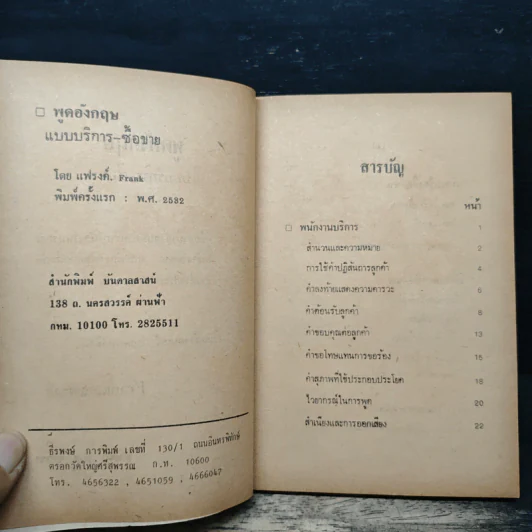 □ พูดอังกฤษ
แบบบริการ-ซื้อขาย
โดย แฟรงค์. Frank
พิมพ์ครั้งแรก : พ.ศ. 2532
สำนักพิมพ์ บันดาลสาส์น
138 ถ. นครสวรรค์ ผ่านฟ้า
กทม. 10100 โทร. 2825511
ธีรพงษ์ การพิมพ์ เลขที่ 130/1 ถนนอินทรพิทักษ์
ตรอกวัดใหญ่ศรีสุพรรณ ก.ท. 10600
โทร. 4656322 , 4651059 , 4666047
สารบัญ
หน้า
□ พนักงานบริการ 1
สำนวนและความหมาย 2
การใช้คำปฏิสันถารลูกค้า 4
คำลงท้ายแสดงความคารวะ 6
คำต้อนรับลูกค้า 8
คำขอบคุณต่อลูกค้า 13
คำขอโทษแทนการขอร้อง 15
คำสุภาพที่ใช้ประกอบประโยค 18
ไวยากรณ์ในการพูด 20
สำเนียงและการออกเสียง 22